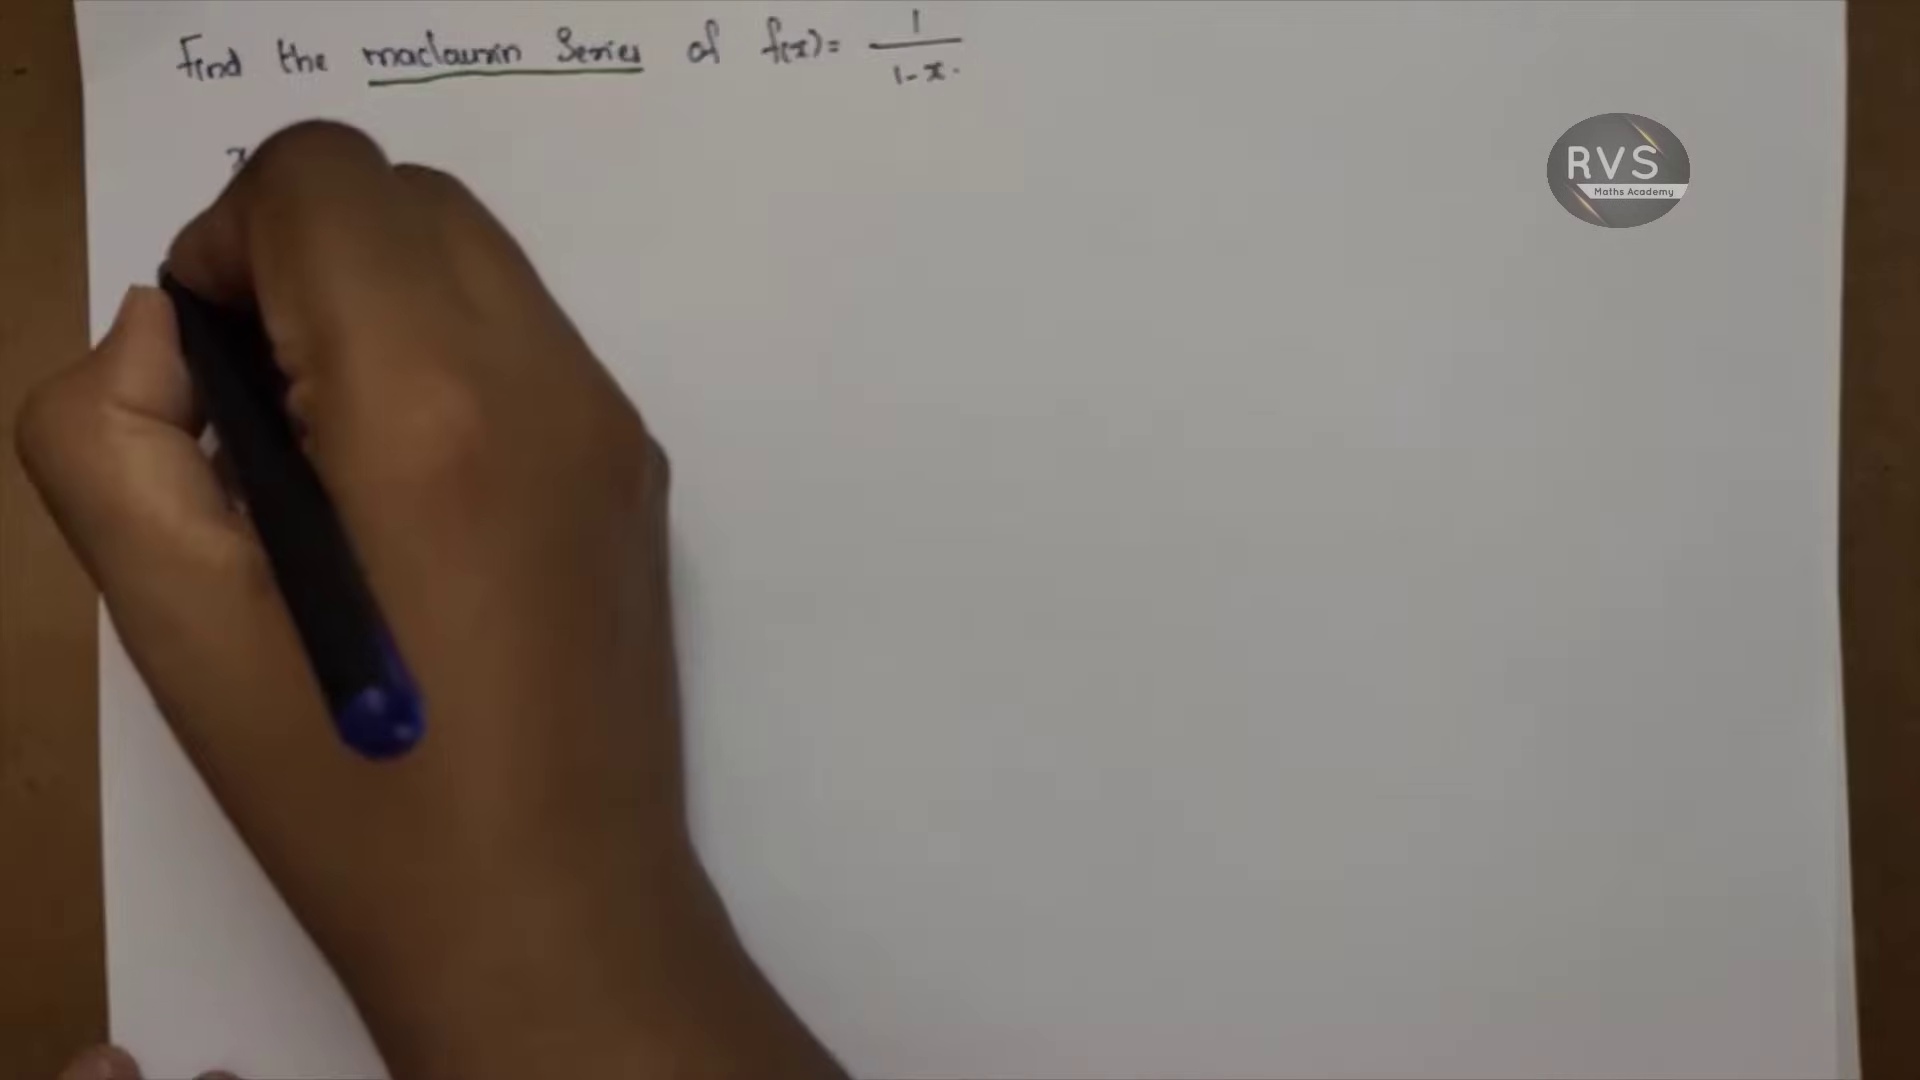 Find the maclaurin Series of f(x) = 1/1-x.
x
RVS
Maths Academy